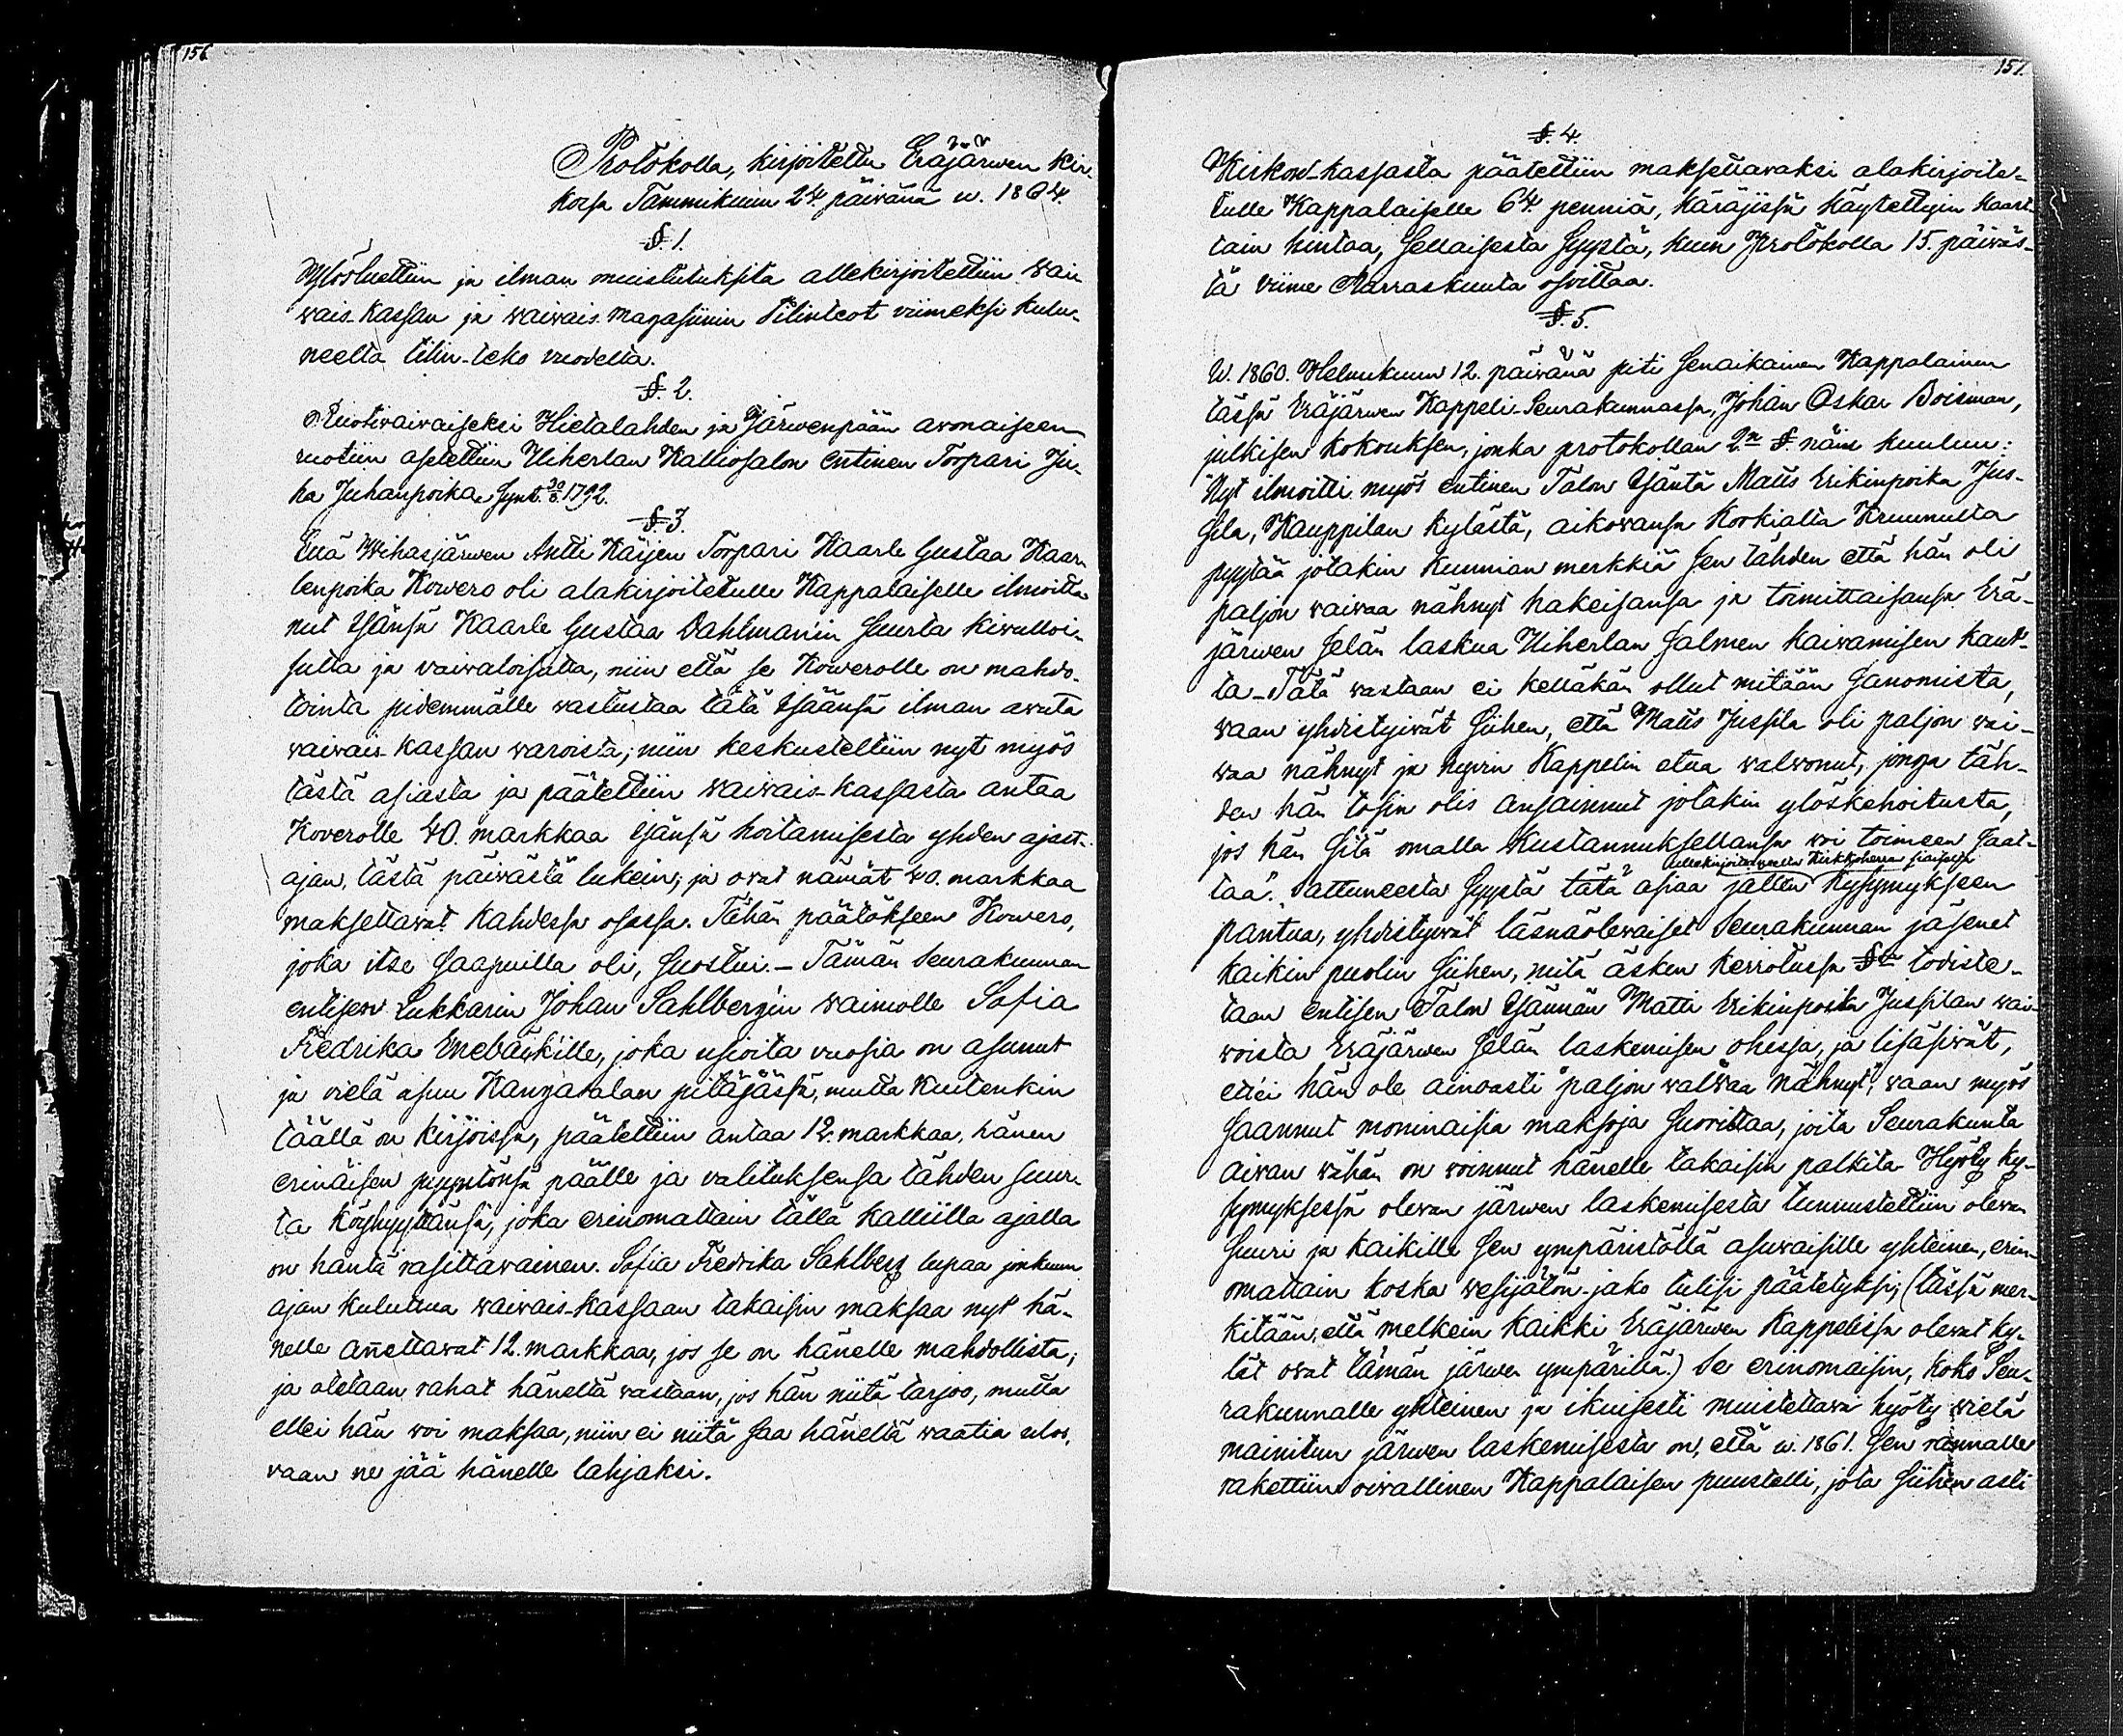 156
Protokolla, kirjoitettu Eräjärwen kir-
kossa Tammikuun 24. päiwänä w. 1864.
§. 1.
Ylösluettiin ja ilman muistutuksita allekirjoitettiin wai-
wais-kassan ja waiwais-magasiinin tilinteot viimeksi kulu-
neelta tilin-teko vuodelta.
§. 2.
Ruotiwaiwaiseksi Hietalahden ja Järwenpään awonaiseen
ruotiin asetettiin Uiherlan Kalliosalon entinen Torpari Ju-
ha Juhanpoika, Synt. 30/6. 1792.
§. 3.
Että Wihasjärwen Antti Käyjen Torpari Kaarle Gustaa Kaar-
lenpoika Kowero oli alakirjoitetulle Kappalaiselle ilmoitta-
nut Isänsä Kaarle Gustaa Dahlman'in Suurta kivulloi-
sutta ja vaivaloisutta, niin että se Kowerolle on mahdo-
tointa pidemmälle vastustaa tätä Isäänsä ilman awuta
waiwais-kassan waroista; niin keskusteltiin nyt myös
tästä asiasta ja päätettiin waiwais-kassasta antaa
Koverolle 40. markkaa Isänsä hoitamisesta yhden ajast-
ajan, tästä päivästä lukein; ja ovat nämät 40. markkaa
maksettavat kahdessa osassa. Tähän päätökseen Kowero,
joka itse Saapuilla oli, Suostui. – Tämän Seurakunnan
entisen Lukkarin Johan Sahlberg'in waimolle Sofia
Fredrika Enebäck'ille, joka usioita vuosia on asunut
ja vielä asuu Kangasalan pitäjässä, mutta kuitenkin
täällä on kirjoissa, päätettiin antaa 12. markkaa, hänen
erinäisen pyyntönsä päälle ja valituksensa tähden Suur-
ta köyhyyttänsä, joka erinomattain tällä kalliilla ajalla
on häntä rasittawainen. Sofia Fredrika Sahlberg lupaa jonkuun
ajan kuluttua waiwais-kassaan takaisin maksaa nyt hä-
nelle añettavat 12. markkaa, jos se on hänelle mahdollista;
ja otetaan rahat häneltä vastaan, jos hän niitä tarjoo, mutta
ellei hän voi maksaa, niin ei niitä saa häneltä waatia ulos,
vaan ne jää hänelle lahjaksi.
157.
§. 4.
Kirkon-kassasta päätettiin maksettavaksi alakirjoite-
tulle Kappalaiselle 64. penniä, käräjissä käytettyin kaart-
tain hintaa, Sellaisesta Syystä, kuin Protokolla 15. päiväs-
tä viime Marraskuuta osoittaa.
§. 5.
W. 1860. Helmikuun 12. päiwänä piti Senaikainen Kappalainen
tässä Eräjärwen Kappeli-Seurakunnassa, Johan Oskar Boisman,
julkisen kokouksen, jonka protokollan 2n §. näin kuuluu:
"Nyt ilmoitti myös entinen Talon Isäntä Matts Erikinpoika Jus-
sila, Kauppilan kylästä, aikovansa korkialta Kruunulta
pyytää jotakin kunnian merkkiä Sen tähden että hän oli
paljon vaivaa nähnyt hakeisansa ja toimittaisansa Erä-
järwen Selän laskua Uiherlan Salmen kaivamisen kaut-
ta. – Tätä wastaan ei kelläkän ollut mitään Sanomista,
vaan yhdistyivät Siihen, että Matts Jussila oli paljon wai-
vaa nähnyt ja hywin Kappelin etua walwonut, jonga täh-
den hän tosin olis ansainnut jotakin ylöskehoitusta,
jos hän Sitä omalla kustannuksellansa woi toimeen Saat-
taa". Sattuneesta Syystä tätä asiaa jällen kysymykseen
pantua, yhdistyivät läsnäolewaiset Seurakunnan jäsenet
kaikin puolin Siihen, mitä äsken kerrotussa §:ssa todiste-
taan entisen Talon Isännän Matti Erikinpoika Jussilan vai-
woista Eräjärwen Selän laskemisen ohessa, ja lisäsivät,
ett'ei hän ole ainoasti "paljon waiwaa nähnyt", vaan myös
Saannut moninaisia maksoja Suorittaa, joita Seurakunta
aivan vähän on woinnut hänelle takaisin palkita. Hyöty ky-
symyksessä olevan järwen laskemisesta tunnustettiin olevan
Suuri ja kaikille Sen ympäristöllä asuwaisille yhteinen, erin-
omattain koska vesijätön-jako tulisi päätetyksi; (tässä mer-
kitään, että melkein kaikki Eräjärwen Kappelissa olevat ky-
lät ovat tämän järwen ympärillä.) Se erinomaisin, koko Seu-
rakunnalle yhteinen ja ikuisesti muistettava hyöty vielä
mainitun järwen laskemisesta on, että w. 1861. Sen rannalle
rakettiin oivallinen Kappalaisen puustelli, jota Siihen asti